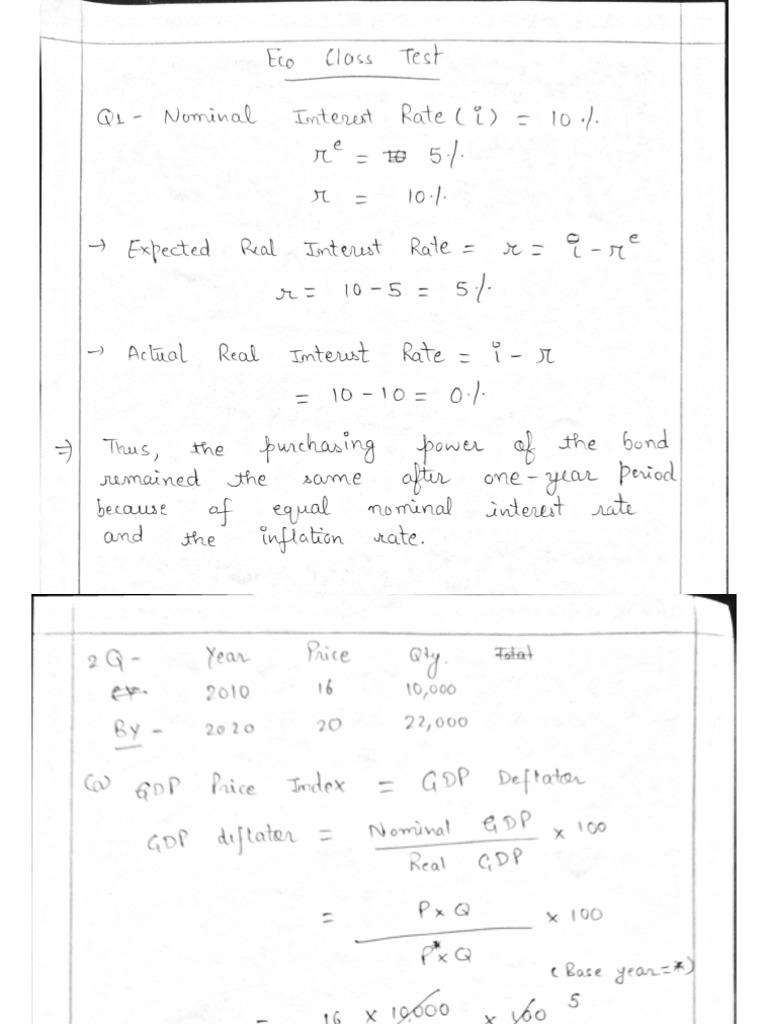 Eco Class Test
Q1 - Nominal Interest Rate (i) = 10%
π^e = 10 5%
π = 10%
→ Expected Real Interest Rate = r = i - π^e
r = 10 - 5 = 5%
→ Actual Real Interest Rate = i - π
= 10 - 10 = 0%
⇒ Thus, the purchasing power of the bond
remained the same after one-year period
because of equal nominal interest rate
and the inflation rate.
2Q - Year Price Qty. Total
2010 16 10,000
By - 2020 20 22,000
(a) GDP Price Index = GDP Deflator
GDP diflator = Nominal GDP × 100
Real GDP
= P × Q × 100
P* × Q
(Base year = *)
= 16 × 10,000 × 100 5